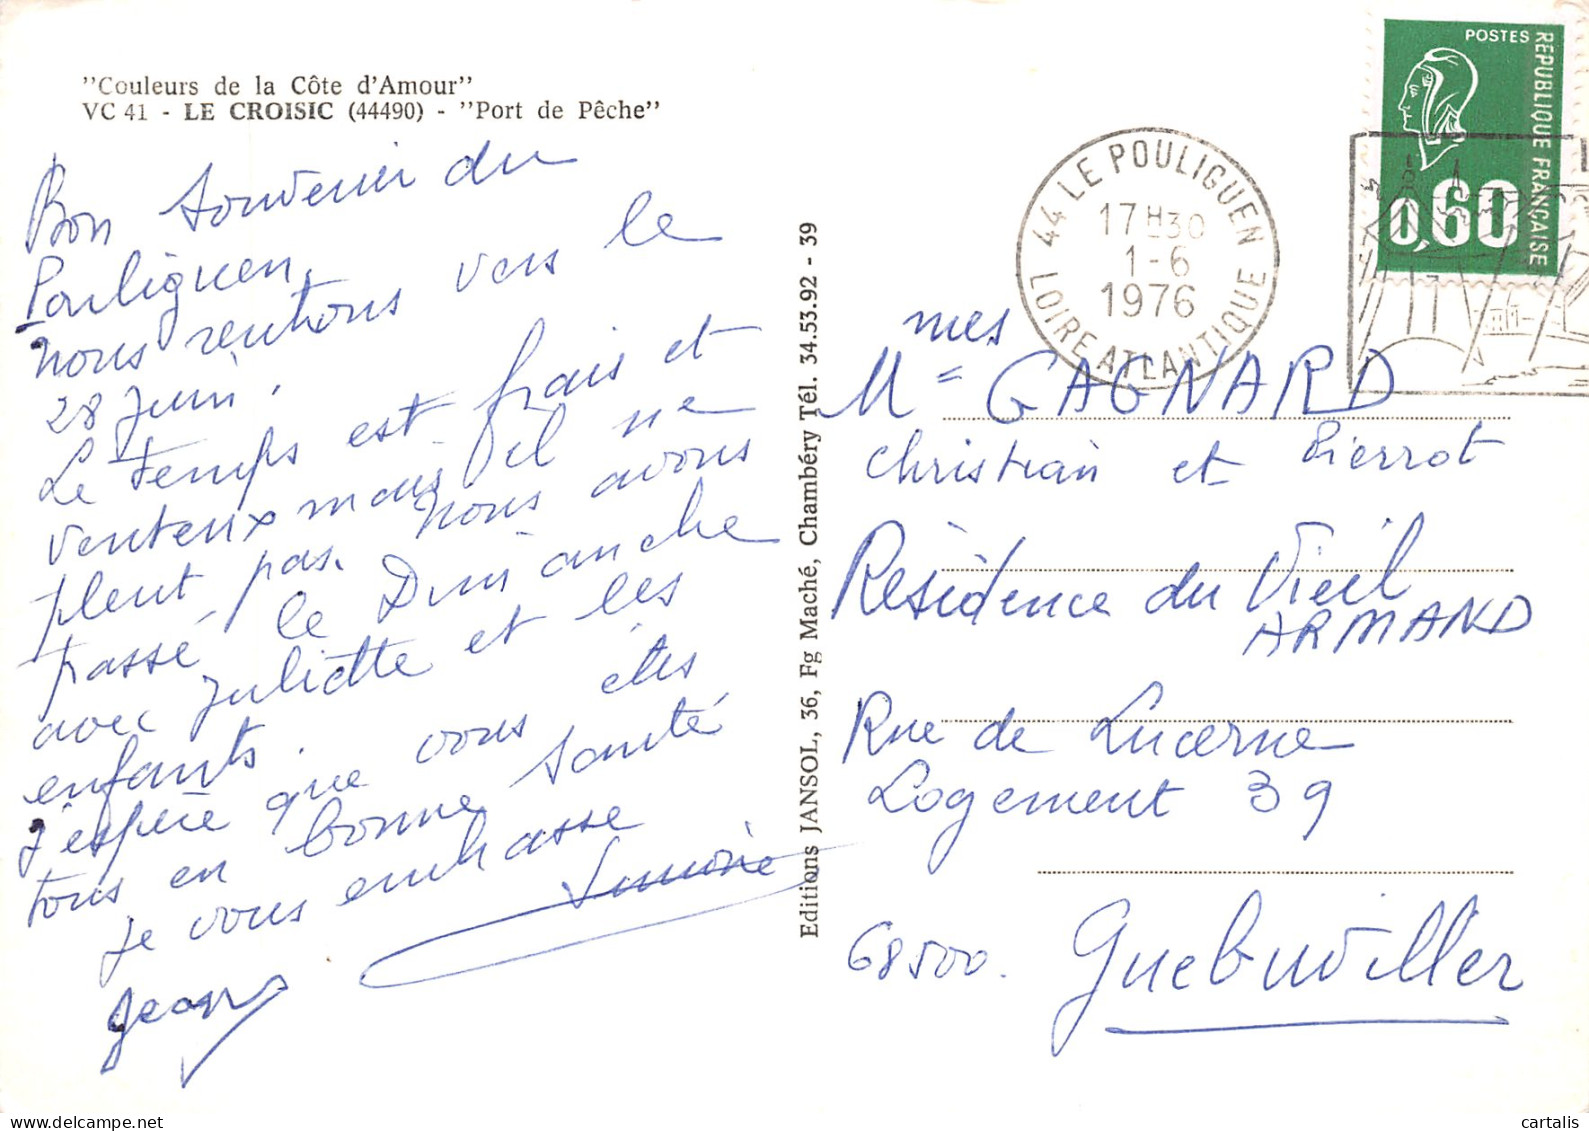 "Couleurs de la Côte d'Amour"
VC 41 - LE CROISIC (44490) - "Port de Pêche"
Bon souvenir du
Pouliguen.
nous rentrons vers le
28 Juin.
Le temps est frais et
venteux mais il ne
pleut pas. nous avons
passé le Dimanche
avec Juliette et les
enfants.
J'espère que vous êtes
tous en bonne santé
je vous embrasse
Simone
Editions JANSOL, 36, Fg Maché, Chambéry Tél. 34.53.92 - 39
POSTES
RÉPUBLIQUE FRANÇAISE
0,60
44 LE POULIGUEN
17H30
1-6
1976
LOIRE ATLANTIQUE
mes
M = GAGNARD
Christian et Pierrot
Résidence du Vieil
ARMAND
Rue de Lucerne
Logement 39
68500. Guebwiller
cartalis